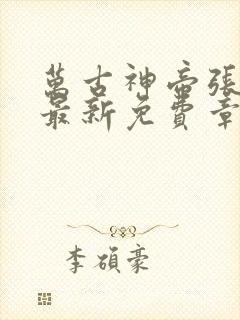 萬古神帝張
最新免費章
李碩豪